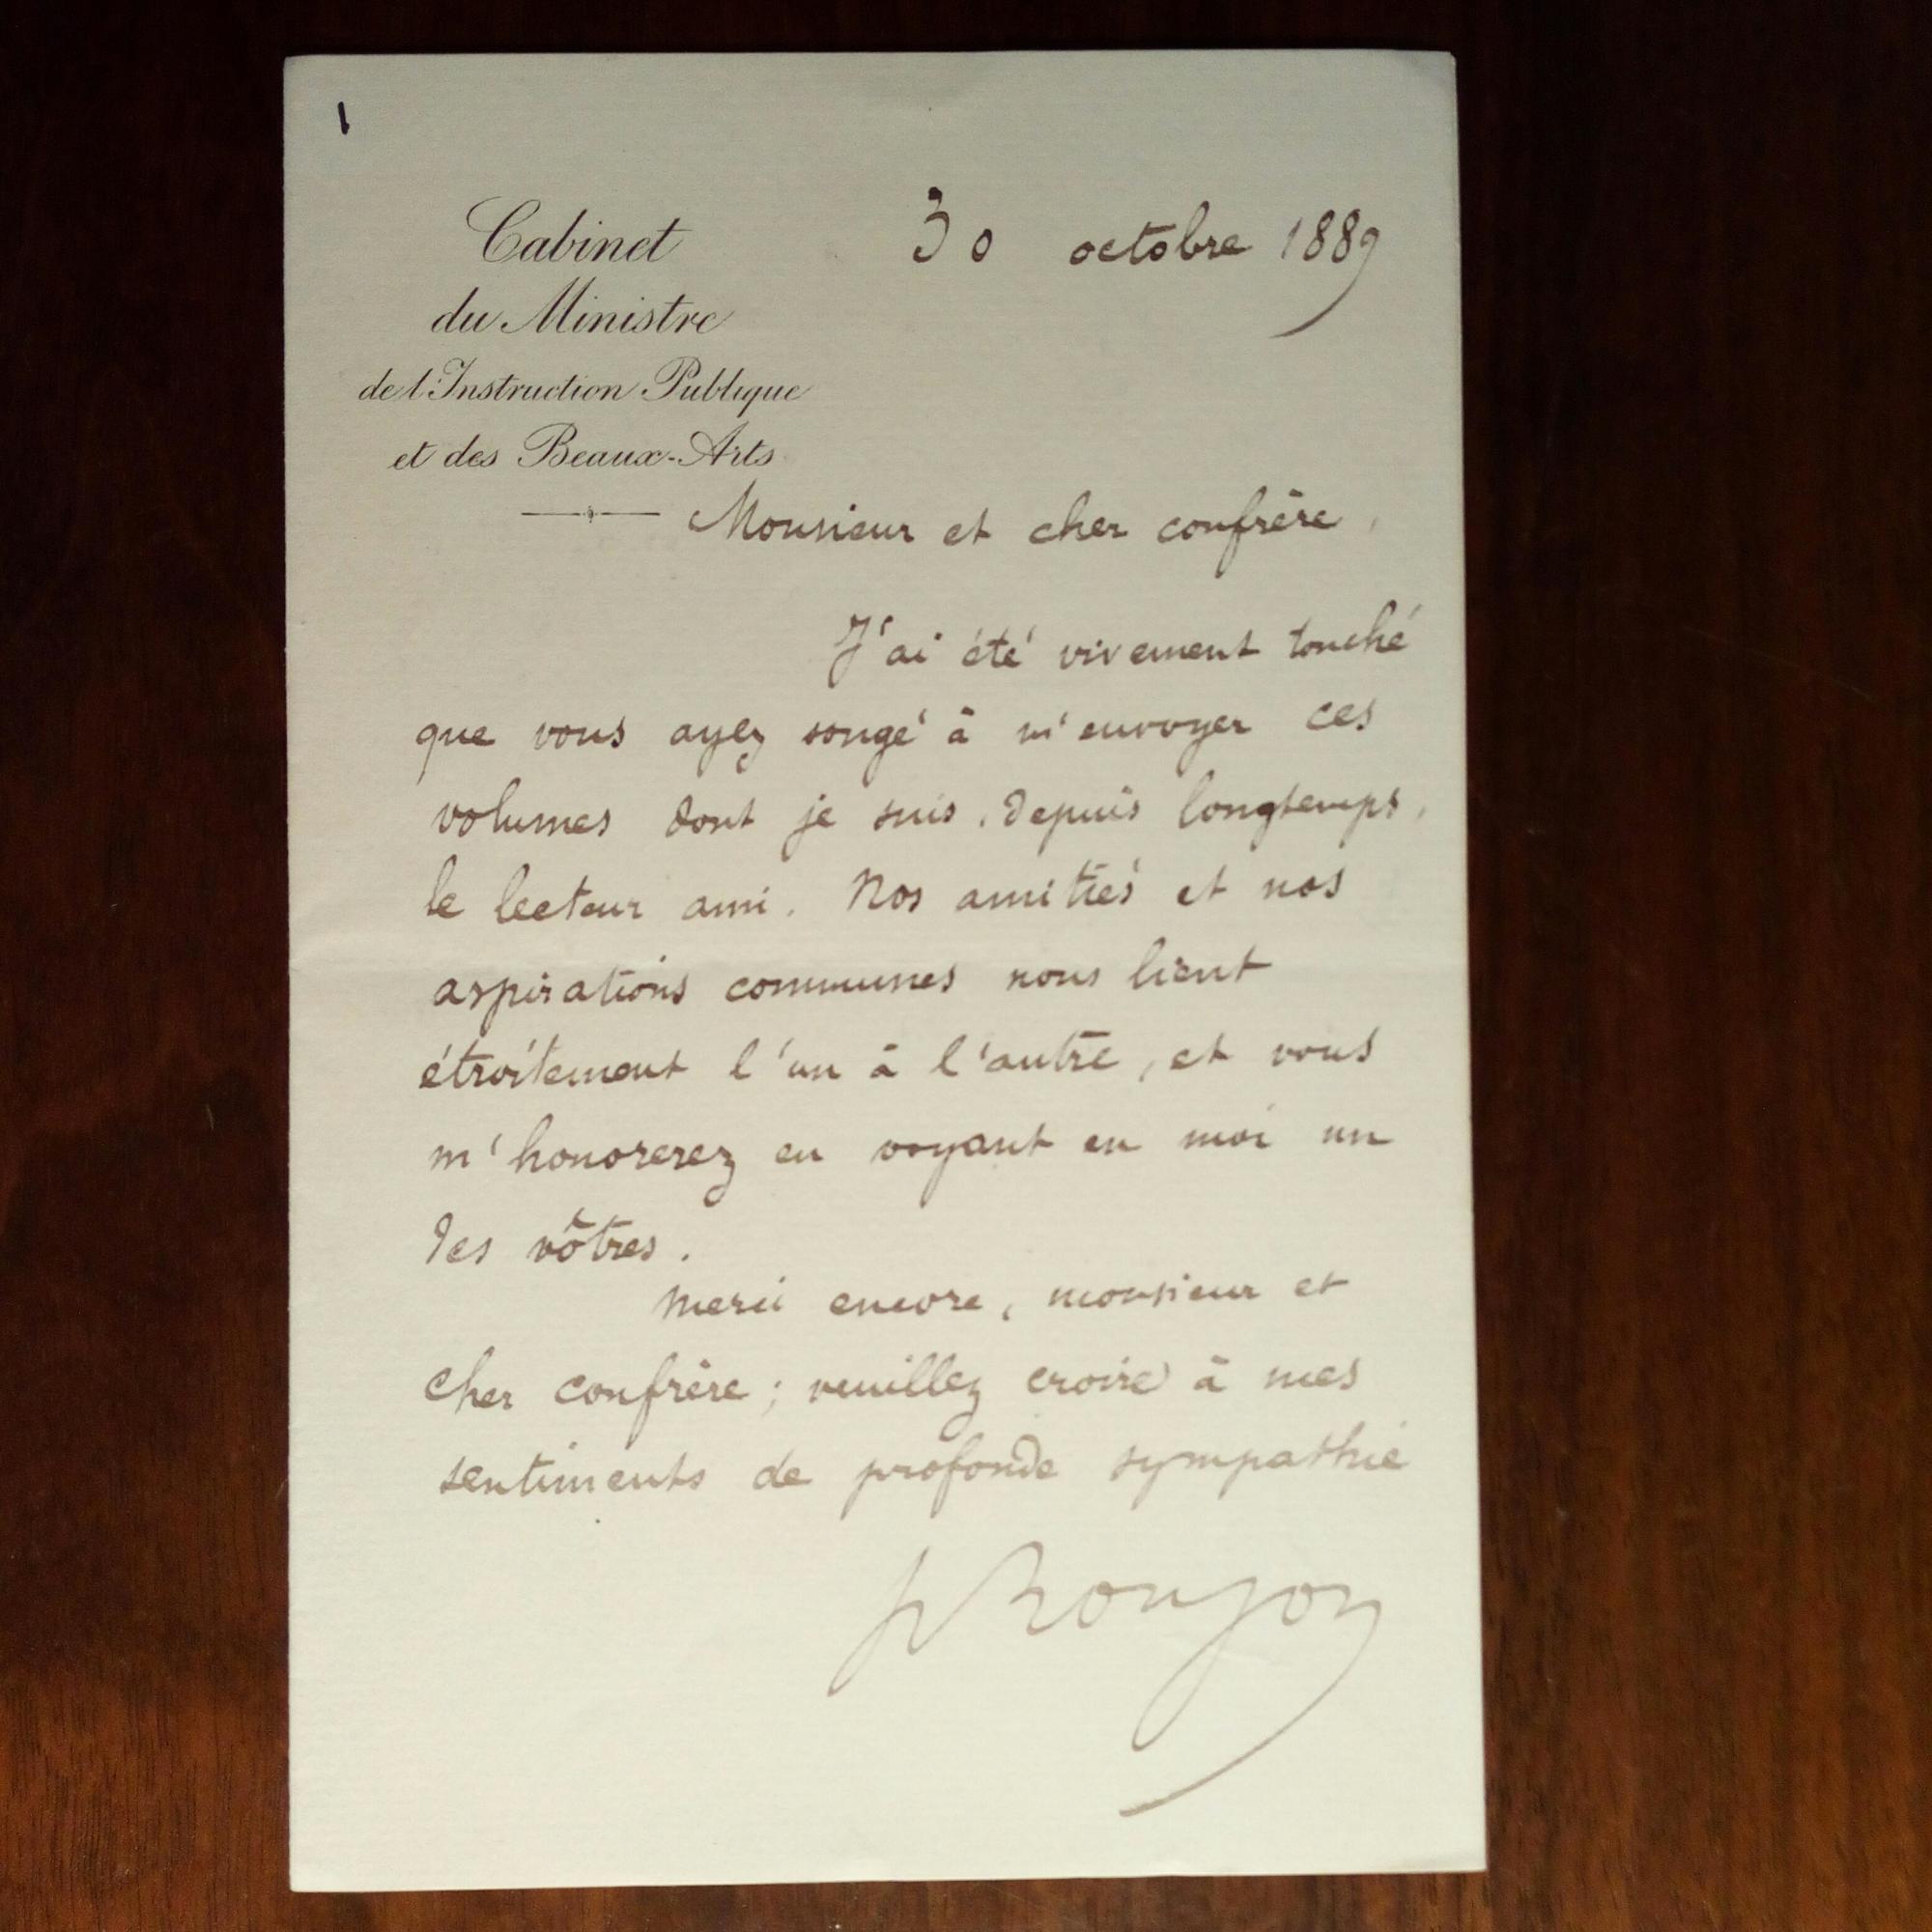 1
Cabinet
du Ministre
de l'Instruction Publique
et des Beaux-Arts
30 octobre 1889
Monsieur et cher confrère,
J'ai été vivement touché
que vous ayez songé à m'envoyer ces
volumes dont je suis, depuis longtemps,
le lecteur ami. Nos amitiés et nos
aspirations communes nous lient
étroitement l'un à l'autre, et vous
m'honorerez en voyant en moi un
des vôtres.
Merci encore, monsieur et
cher confrère ; veuillez croire à mes
sentiments de profonde sympathie
H Roujon